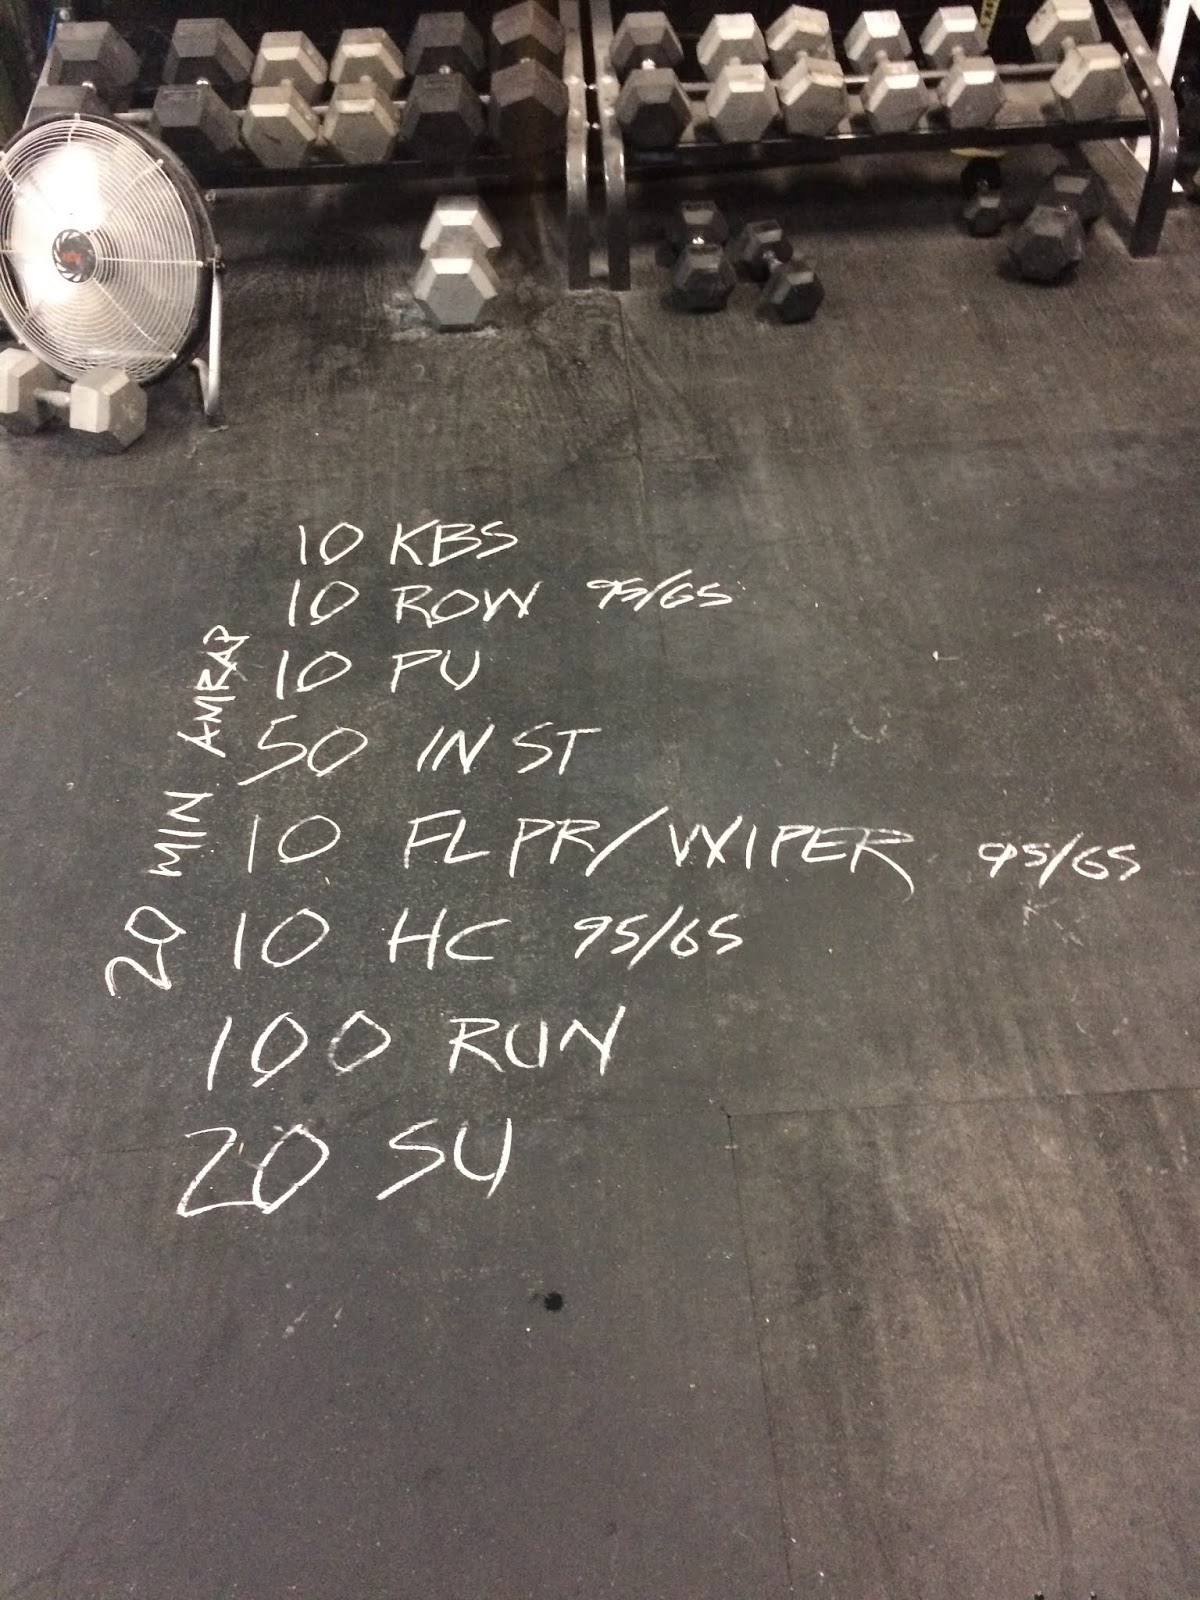 20 MIN AMRAP
10 KBS
10 ROW 95/65
10 PU
50 IN ST
10 FL PR/WIPER 95/65
10 HC 95/65
100 RUN
20 SU